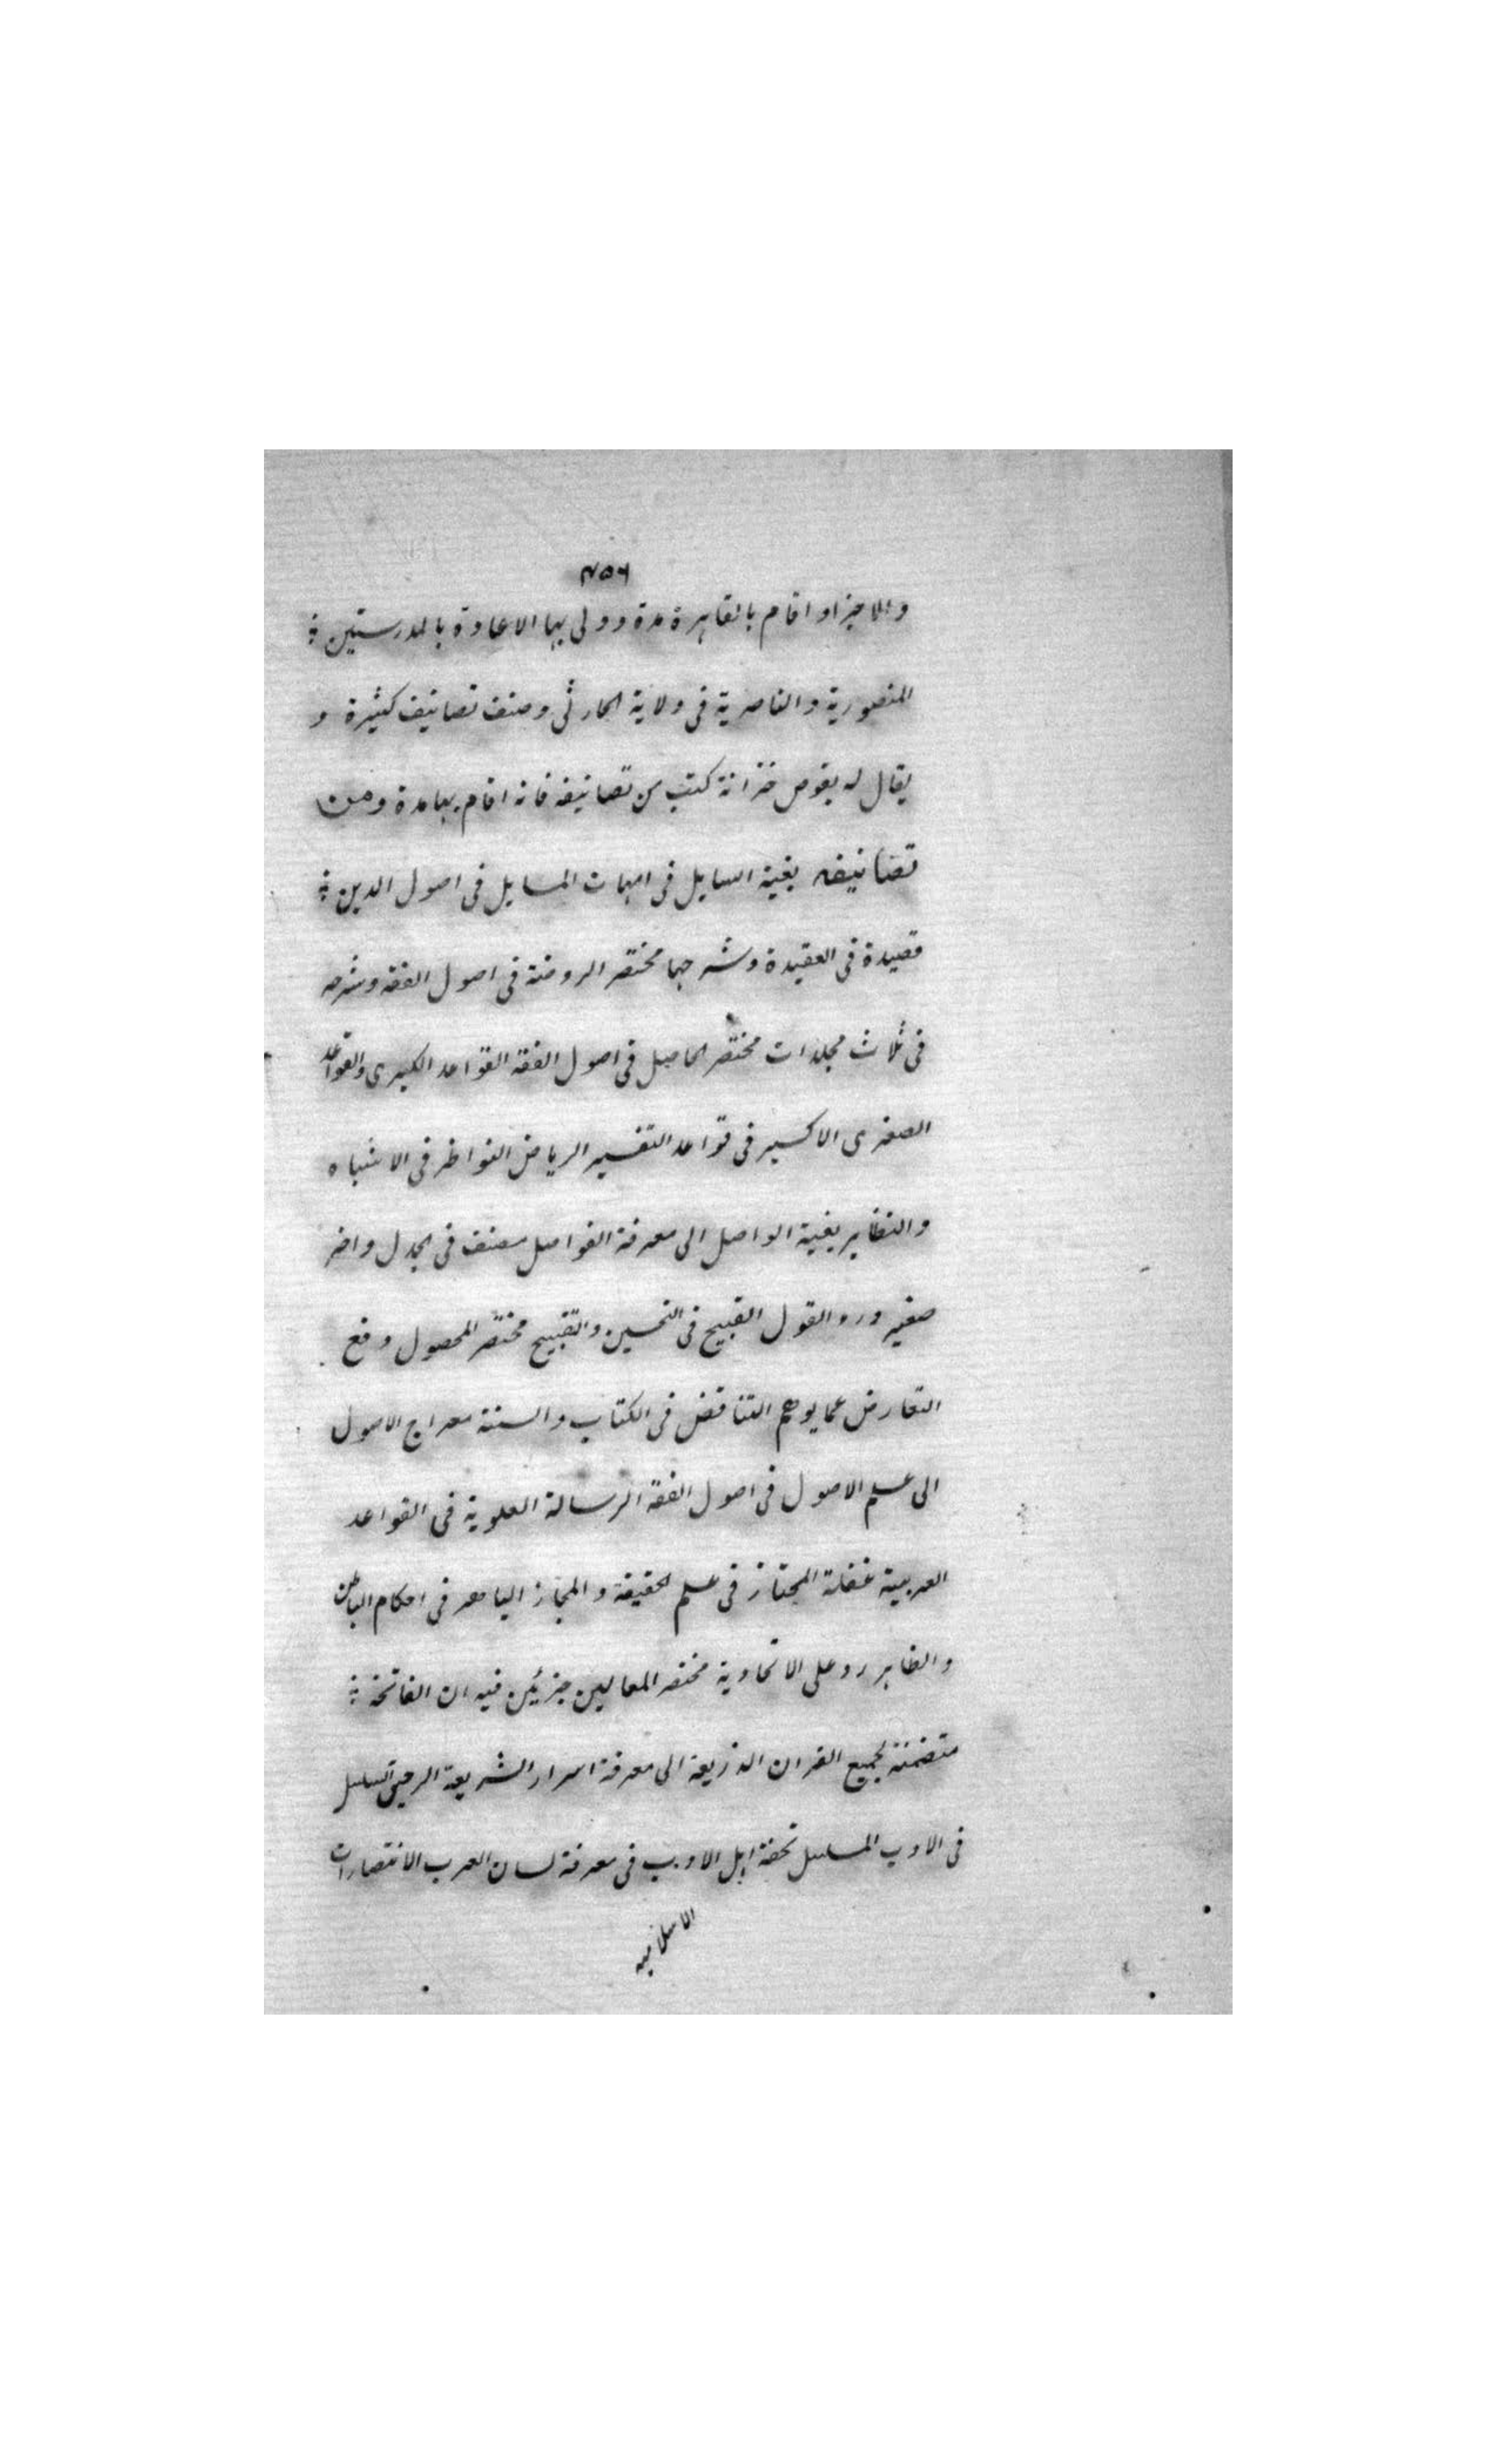 ٧٥٦
والاجزاء واقام بالقاهرة مدة وولى بها الاعادة بالمدرستين
المنصورية والناصرية فى ولاية الحارثى وصنف تصانيف كثيرة و
يقال له بقوص خزانة كتب من تصانيفه فانه اقام بها مدة ومن
تصانيفه بغية السايل فى امهات المسايل فى اصول الدين
قصيدة فى العقيدة وشرحها مختصر الروضة فى اصول الفقه وشرحه
فى ثلاث مجلدات مختصر الحاصل فى اصول الفقه القواعد الكبرى والقواعد
الصغرى الاكسير فى قواعد التفسير الرياض النواظر فى الاشباه
والنظاير بغية الواصل الى معرفة الفواصل مصنف فى الجدل واخر
صغير ورد القول القبيح فى التحسين والتقبيح مختصر المحصول دفع
التعارض عما يوهم التناقض فى الكتاب والسنة معراج الاصول
الى علم الاصول فى اصول الفقه الرسالة العلوية فى القواعد
العربية غفلة المجتاز فى علم الحقيقة والمجاز الباهر فى احكام الباطن
والظاهر رد على الاتحادية مختصر المعالين جزئين فيه ان الفاتحة
متضمنة لجميع القران الذريعة الى معرفة اسرار الشريعة الرحيق السلسل
فى الادب المسلسل تحفة اهل الادب فى معرفة لسان العرب الانتصارات
الاسلاميه